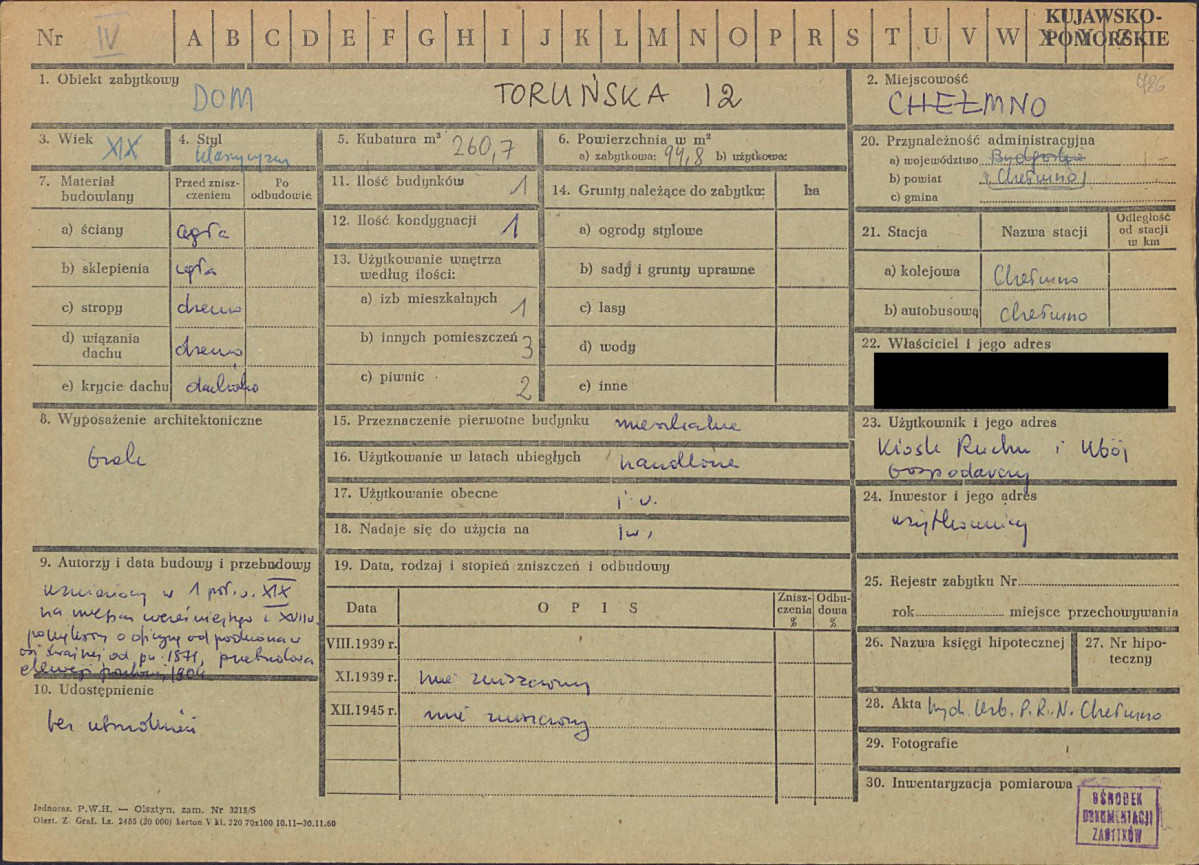 Nr IV A B C D E F G H I J K L M N O P R S T U V W X Y Z
KUJAWSKO-
POMORSKIE
1. Obiekt zabytkowy
DOM TORUŃSKA 12
2. Miejscowość
486
CHEŁMNO
3. Wiek XIX
4. Styl
klasycyzm
5. Kubatura m³ 260,7
6. Powierzchnia w m²
a) zabytkowa: 94,8 b) użytkowa:
20. Przynależność administracyjna
a) województwo Bydgoskie
b) powiat Chełmno
c) gmina
7. Materiał budowlany
Przed zniszczeniem
Po odbudowie
a) ściany cegła
b) sklepienia cegła
c) stropy drewno
d) wiązania dachu drewno
e) krycie dachu dachówka
11. Ilość budynków 1
12. Ilość kondygnacji 1
13. Użytkowanie wnętrza
według ilości:
a) izb mieszkalnych 1
b) innych pomieszczeń 3
c) piwnic 2
14. Grunty należące do zabytku: ha
a) ogrody stylowe
b) sady i grunty uprawne
c) lasy
d) wody
e) inne
21. Stacja Nazwa stacji
Odległość
od stacji
w km
a) kolejowa Chełmno
b) autobusowa Chełmno
22. Właściciel i jego adres
8. Wyposażenie architektoniczne
brak
15. Przeznaczenie pierwotne budynku mieszkalne
16. Użytkowanie w latach ubiegłych handlowe
17. Użytkowanie obecne j. w.
18. Nadaje się do użycia na j w.
23. Użytkownik i jego adres
Kiosk Ruchu i Ubój
Gospodarczy
24. Inwestor i jego adres
użytkownicy
9. Autorzy i data budowy i przebudowy
wzniesiony w 1 poł. w. XIX
na miejscu wcześniejszego z XVIII w.
powiększony o oficynę od podwórza w
osi skrajnej od pn. 1871, przebudowa
elewacji frontowej 1904
10. Udostępnienie
bez utrudnień
19. Data, rodzaj i stopień zniszczeń i odbudowy
Data OPIS
Znisz-
czenia
%
Odbu-
dowa
%
VIII.1939 r.
XI.1939 r. nie zniszczony
XII.1945 r. nie zniszczony
25. Rejestr zabytku Nr
rok miejsce przechowywania
26. Nazwa księgi hipotecznej
27. Nr hipo-
teczny
28. Akta Wyd. Urb. P.R.N. Chełmno
29. Fotografie
30. Inwentaryzacja pomiarowa
OŚRODEK
DOKUMENTACJI
ZABYTKÓW
Jednoraz. P.W.H. — Olsztyn, zam. Nr 3215/S
Olszt. Z. Graf. Lz. 2485 (30 000) karton V kl. 220 70x100 10.11—30.11.60